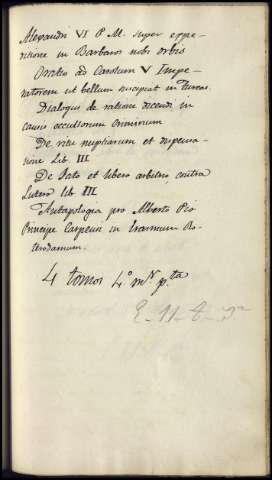 Alexandri VI P. M. super expe-
ditione in Barbaros nobi orbis
Oratio ad Carolum V Impe-
ratorem ut bellum suscipiat in Turcas.
Dialogus de ratione dicendi in
causis occultorum criminum
De ritu nuptiarum et dispensa-
tione Lib. III
De Fato et libero arbitrio contra
Lutero lib III
Antapologia pro Alberto Pio
Principe Carpensi in Erasmum Ro-
terodamum.
4 tomos 4º mr pta